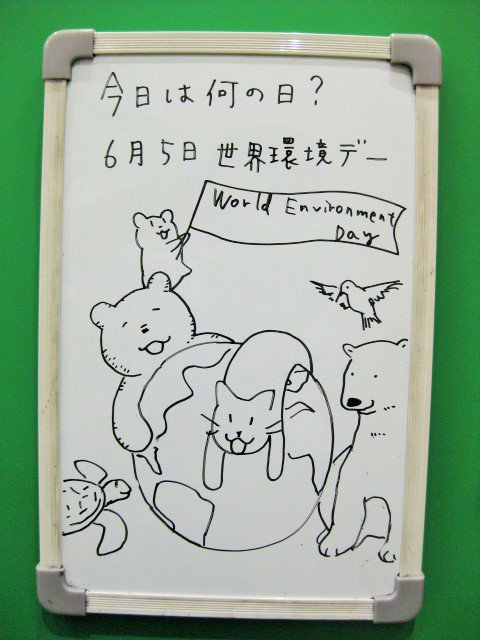 今日は何の日?
6月5日 世界環境デー
World Environment
Day